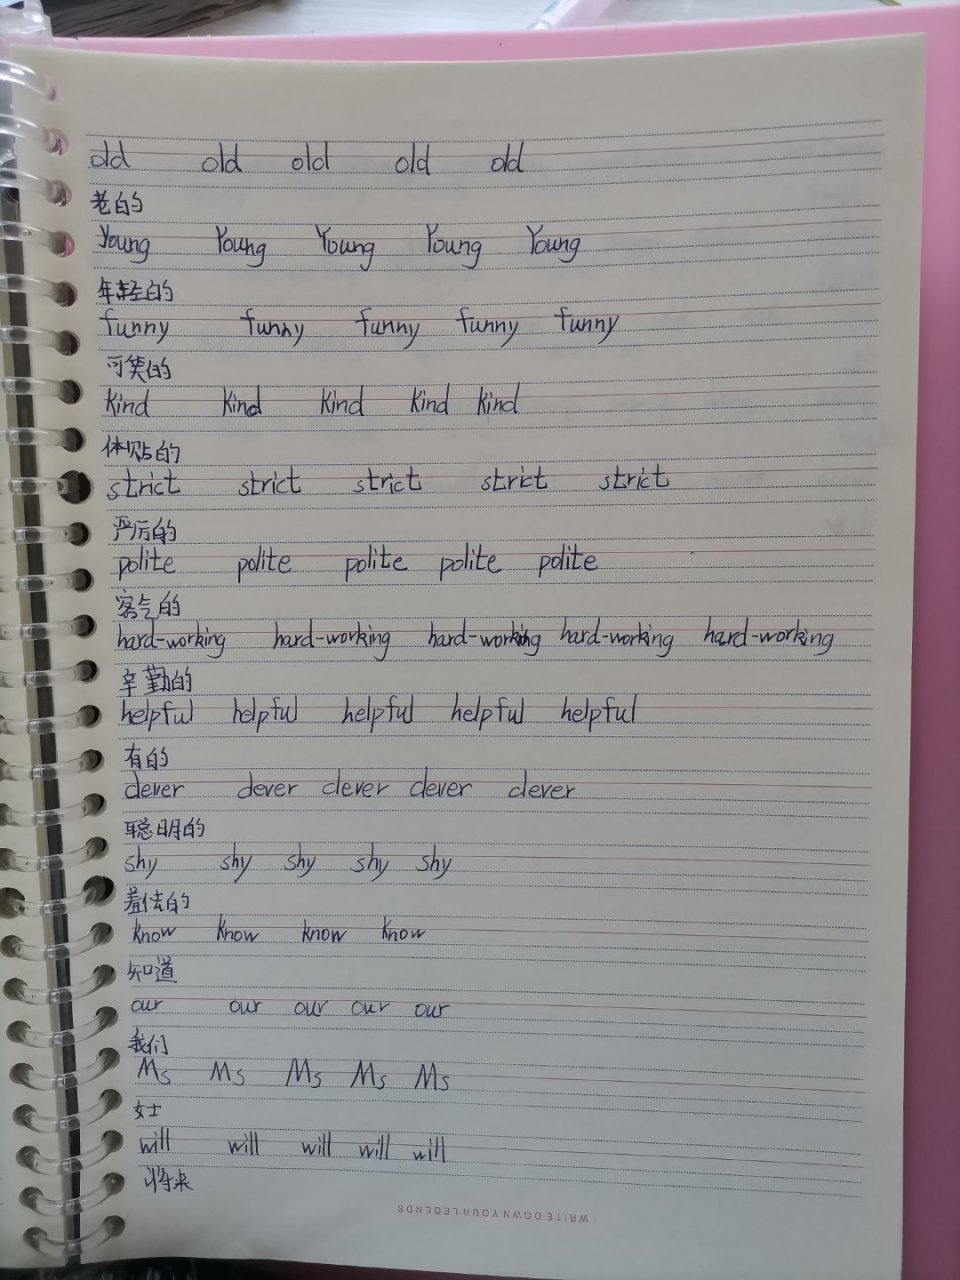 old old old old old
老的
Young Young Young Young Young
年轻的
funny funny funny funny funny
可笑的
kind kind kind kind kind
体贴的
strict strict strict strict strict
严厉的
polite polite polite polite polite
客气的
hard-working hard-working hard-working hard-working hard-working
辛勤的
helpful helpful helpful helpful helpful
有的
clever clever clever clever clever
聪明的
shy shy shy shy shy
羞怯的
know know know know
知道
our our our our our
我们
Ms Ms Ms Ms Ms
女士
will will will will will
将来
· WRITE DOWN YOUR LEGENDS